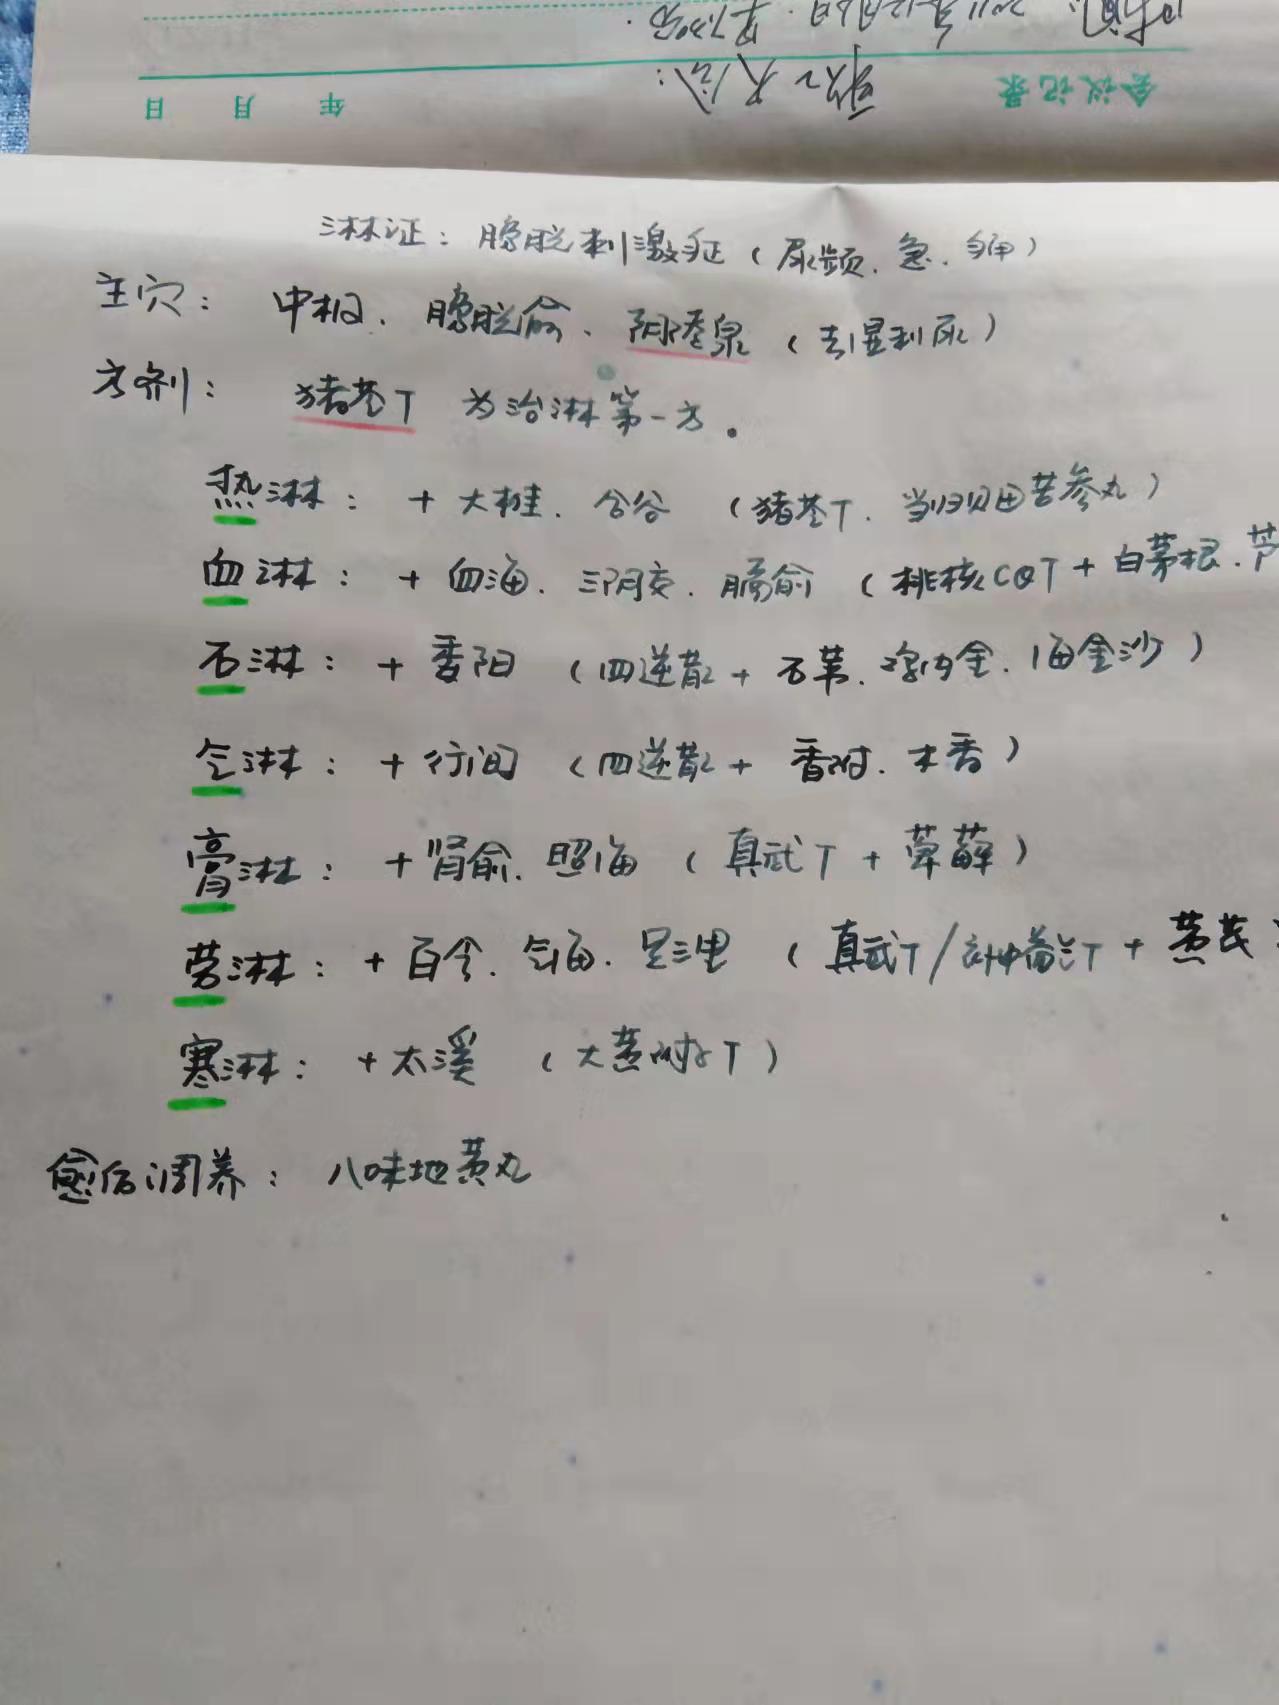 会议记录
年 月 日
淋证：膀胱刺激征（尿频、急、痛）
主穴：中极、膀胱俞、阴陵泉（去湿利尿）
方剂：猪苓T 为治淋第一方。
热淋：+大椎、合谷（猪苓T、当归贝母苦参丸）
血淋：+血海、三阴交、膈俞（桃核CQT+白茅根、
石淋：+委阳（四逆散+石苇、鸡内金、海金沙）
气淋：+行间（四逆散+香附、木香）
膏淋：+肾俞、照海（真武T+萆薢）
劳淋：+百会、气海、足三里（真武T/补中益气T+黄芪
寒淋：+太溪（大黄附子T）
愈后调养：八味地黄丸